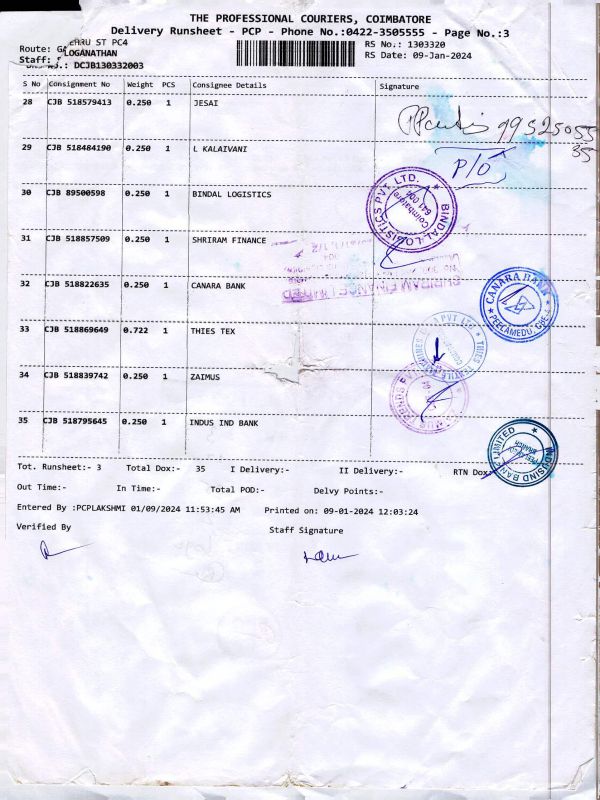 THE PROFESSIONAL COURIERS, COIMBATORE
Delivery Runsheet - PCP - Phone No.:0422-3505555 - Page No.:3
Route: EHRU ST PC4
RS No.: 1303320
Staff: LOGANATHAN
RS Date: 09-Jan-2024
No.: DCJB130332003
S No Consignment No Weight PCS Consignee Details Signature
28 CJB 518579413 0.250 1 JESAI
99525055
35
29 CJB 518484190 0.250 1 L KALAIVANI
P/O
30 CJB 89500598 0.250 1 BINDAL LOGISTICS
BINDAL LOGISTICS PVT. LTD.
Coimbatore
31 CJB 518857509 0.250 1 SHRIRAM FINANCE
SHRIRAM FINANCE LIMITED
32 CJB 518822635 0.250 1 CANARA BANK
CANARA BANK
PEELAMEDU, CBE-4
33 CJB 518869649 0.722 1 THIES TEX
34 CJB 518839742 0.250 1 ZAIMUS
35 CJB 518795645 0.250 1 INDUS IND BANK
INDUSIND BANK LIMITED
Tot. Runsheet:- 3 Total Dox:- 35 I Delivery:- II Delivery:- RTN Dox
Out Time:- In Time:- Total POD:- Delvy Points:-
Entered By :PCPLAKSHMI 01/09/2024 11:53:45 AM Printed on: 09-01-2024 12:03:24
Verified By Staff Signature